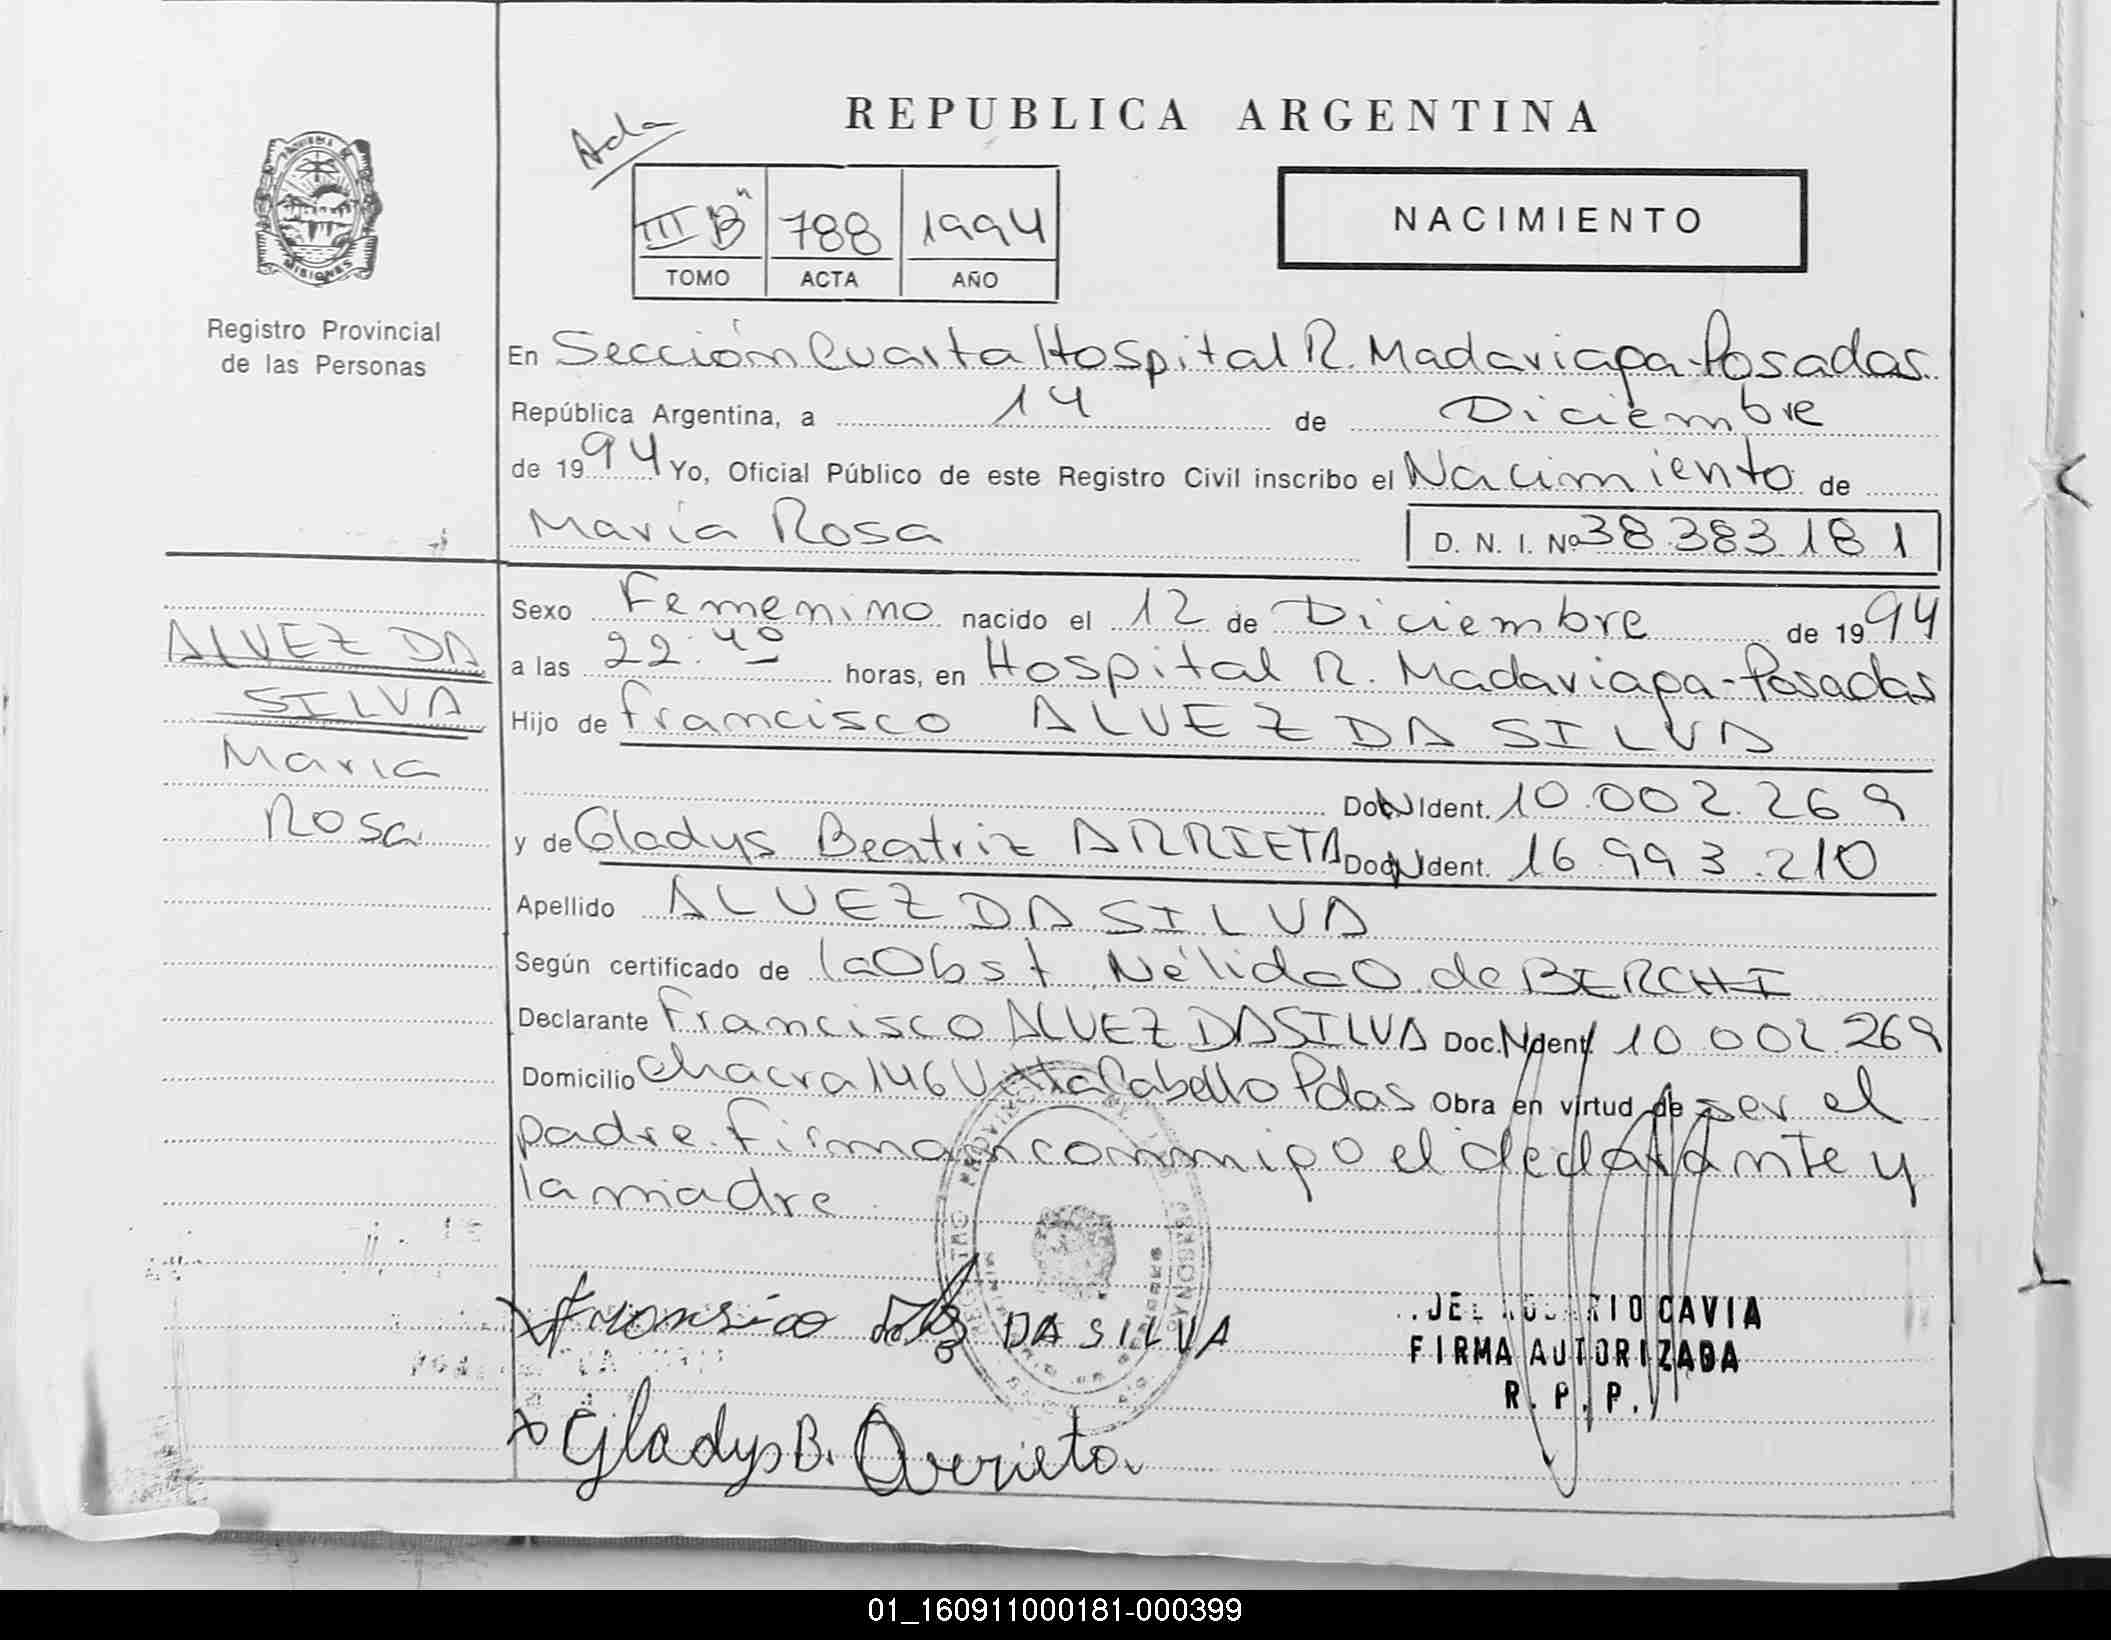 REPUBLICA ARGENTINA
Ada
III B" 788 1994
TOMO ACTA AÑO
NACIMIENTO
MISIONES
Registro Provincial
de las Personas
En Sección Cuarta Hospital R. Madariaga-Posadas
República Argentina, a 14 de Diciembre
de 1994 Yo, Oficial Público de este Registro Civil inscribo el Nacimiento de
María Rosa D. N. I. Nº 38.383.181
ALVEZ DA
SILVA
Maria
Rosa
Sexo Femenino nacido el 12 de Diciembre de 1994
a las 22:40 horas, en Hospital R. Madariaga-Posadas
Hijo de Francisco ALVEZ DA SILVA
Doc. N Ident. 10.002.269
y de Gladys Beatriz ARRIETA Doc. N Ident. 16.993.210
Apellido ALVEZ DA SILVA
Según certificado de la Obst. Nélida O. de BIERCHI
Declarante Francisco ALVEZ DA SILVA Doc. N Ident. 10.002.269
Domicilio Chacra 146 Villa Cabello Pdas Obra en virtud de ser el
padre. Firman conmigo el declarante y
la madre
Francisco DA SILVA
Gladys B. Arrieta
CAVIA
FIRMA AUTORIZADA
R. P. P.
01_160911000181-000399